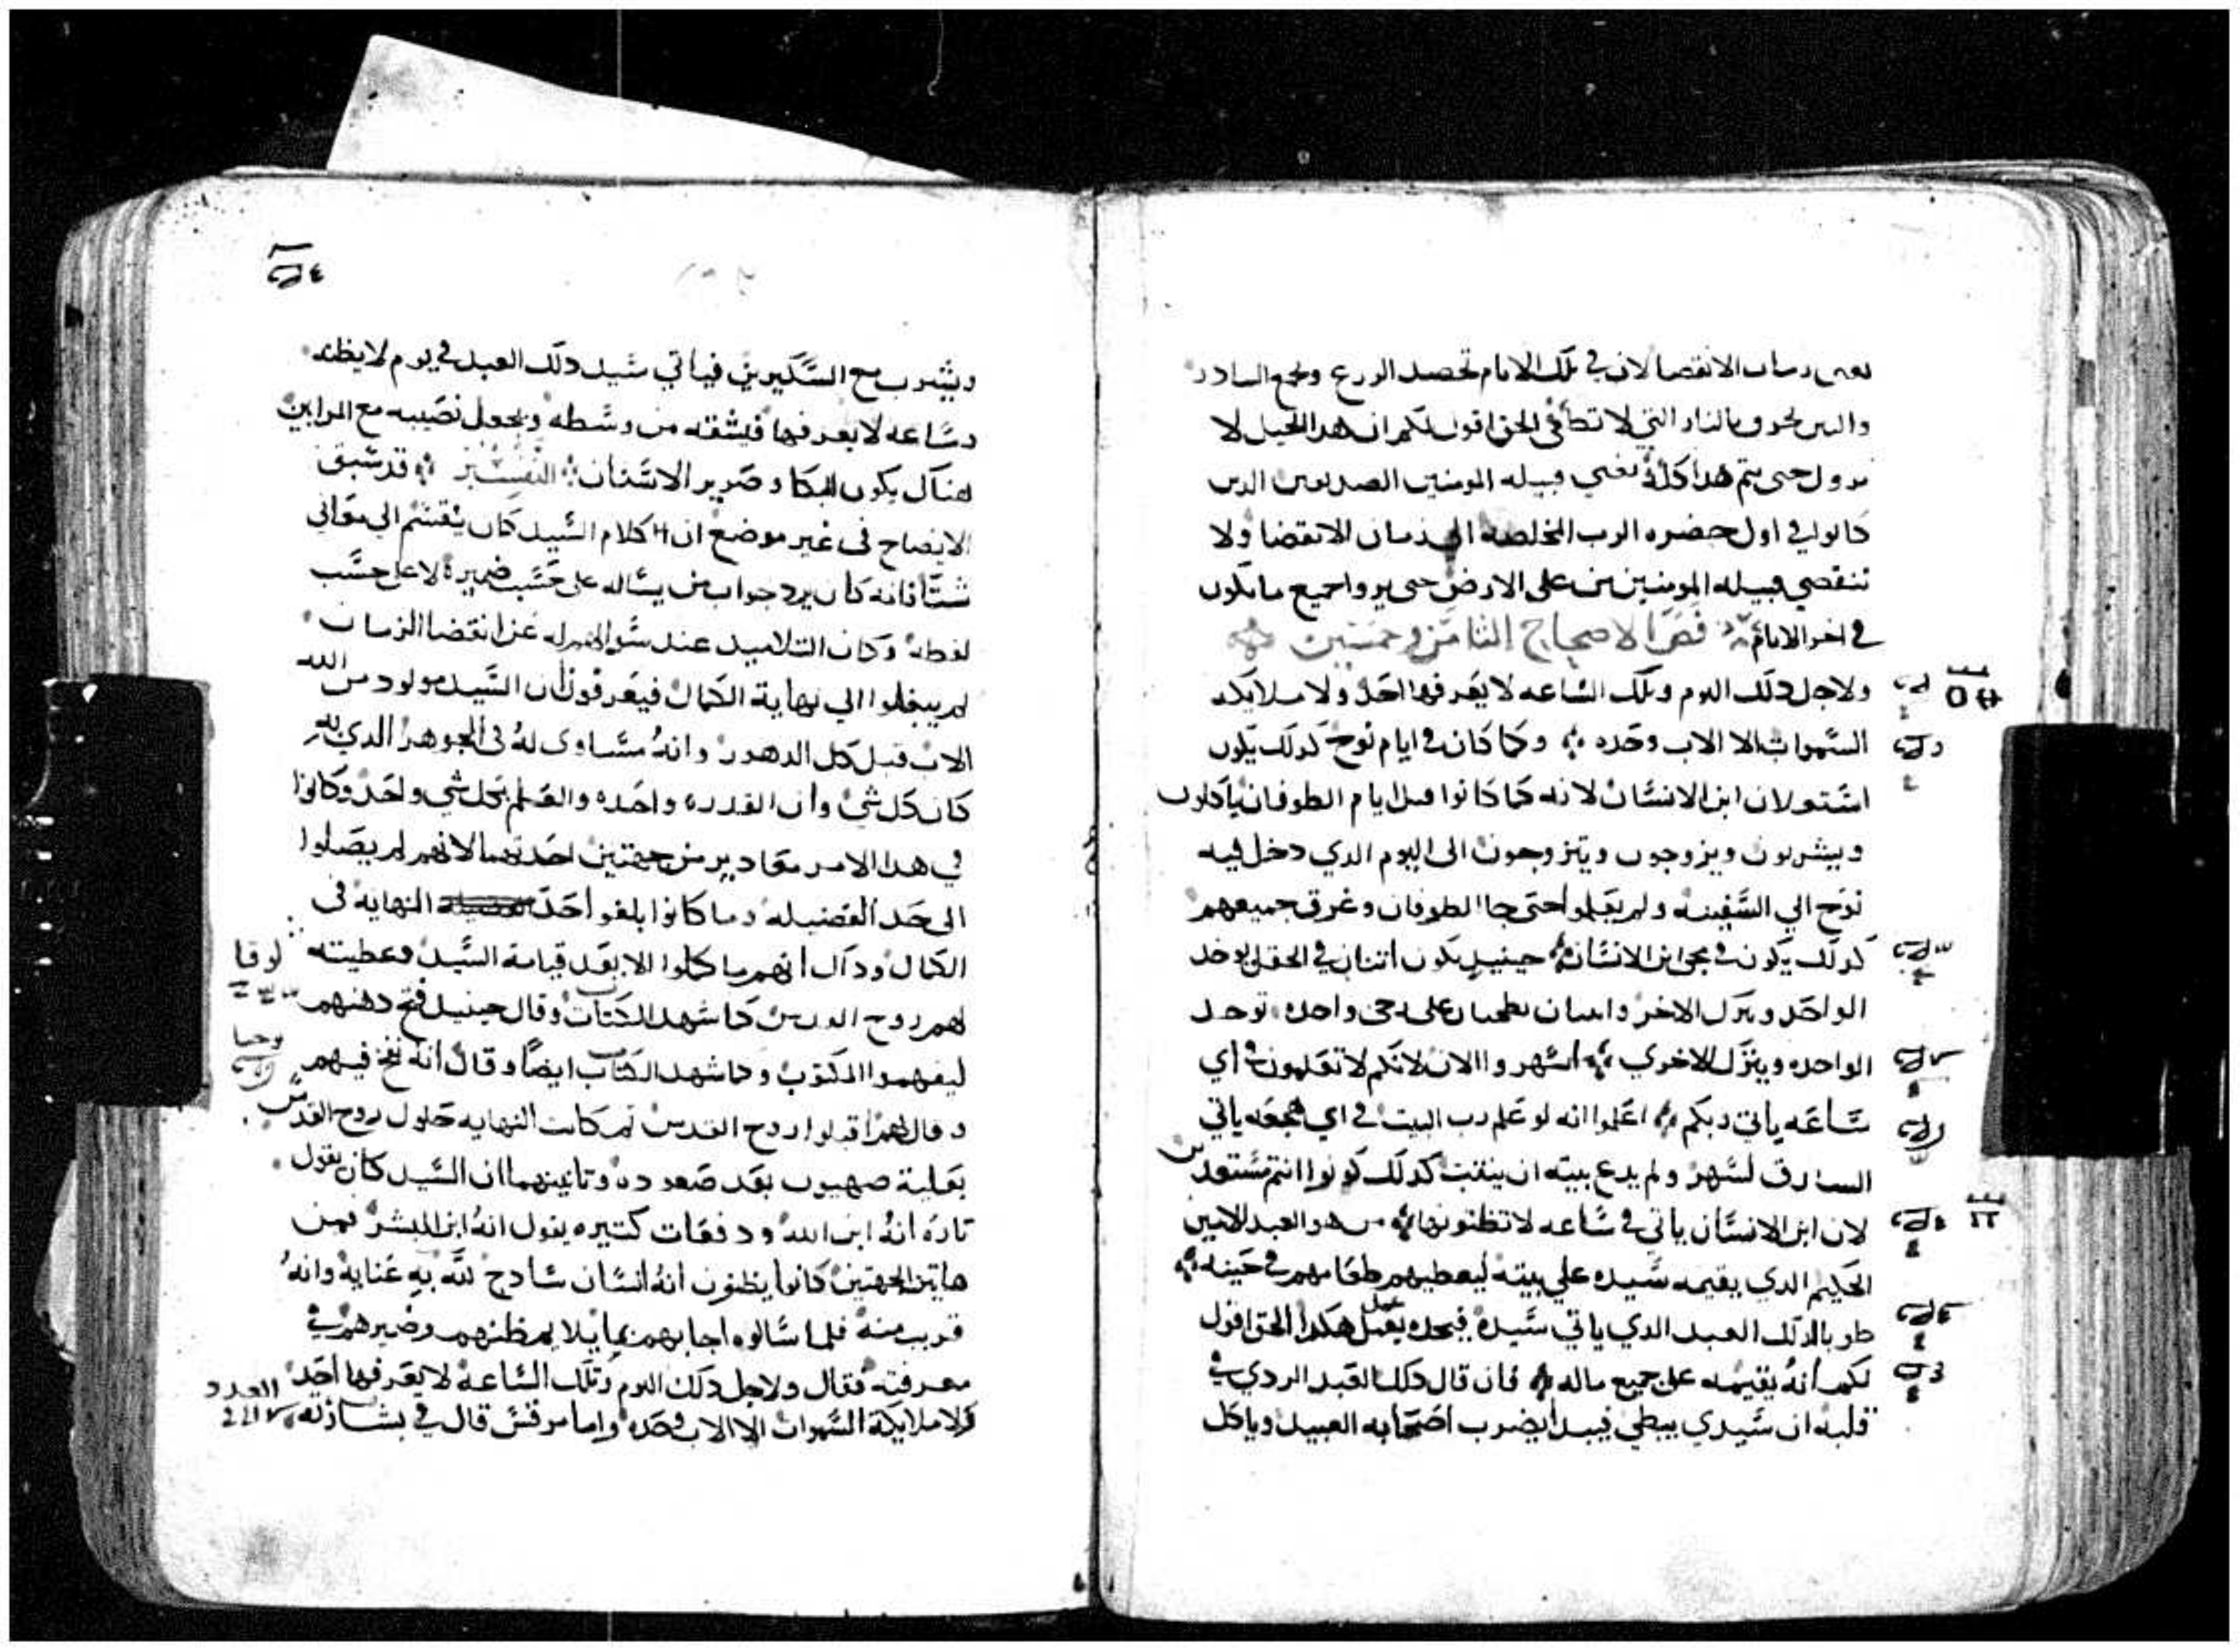 يعني زمان الانقضا لان في تلك الايام تحصد الزرع وتجمع البيادر
والتبن يحرق بالنار التي لا تطفى الحق اقول لكم ان هدا الجيل لا
يزول حتى يتم هدا كله يعني قبيله المومنين الصديقين الدين
كانوا في اول حضره الرب المخلصه الى زمان الانقضا ولا
تنقضي قبيله المومنين من على الارض حتى يروا جميع ما يكون
في اخر الايام فص الاصحاح الثامن وخمسين
ولاجل دلك اليوم وتلك الساعه لا يعرفها احد ولا ملايكه
السموات الا الاب وحده وكما كان في ايام نوح كدلك يكون
استعلان ابن الانسان لانه كما كانوا قبل ايام الطوفان ياكلون
ويشربون ويزوجون ويتزوجون الى اليوم الدي دخل فيه
نوح الي السفينه ولم يعلموا حتى جا الطوفان وغرق جميعهم
كدلك يكون في مجي ابن الانسان حينيد يكون اتنان في الحقل يوخد
الواحد ويترك الاخر واتنتان يطحنان على رحى واحده توخد
الواحده ويترك الاخري اسهروا الان لانكم لا تعلمون في اي
ساعه ياتي ربكم اعلموا انه لو علم رب البيت في اي هجعه ياتي
السارق لسهر ولم يدع بيته ان ينقب كدلك كونوا انتم مستعدين
لان ابن الانسان ياتي في ساعه لا تظنونها من هو العبد الامين
الحكيم الدي يقيمه سيده علي بيته ليعطيهم طعامهم في حينه
طوبا لدلك العبد الدي ياتي سيده فيجده يعمل هكدا الحق اقول
لكم انه يقيمه على جميع ماله فان قال دلك العبد الردي في
قلبه ان سيدي يبطي فيبدا يضرب اصحابه العبيد وياكل
ويشرب مع السكيرين فياتي سيد دلك العبد في يوم لا يظنه
وساعه لا يعرفها فيشقه من وسطه ويجعل نصيبه مع المرايين
هناك يكون البكا وصرير الاسنان التفسير قد سبق
الايضاح في غير موضع ان كلام السيد كان ينقسم الي معاني
شتا فانه كان يرد جواب من يساله على حسب ضميره لا على حسب
لفظه وكان التلاميد عند سوالهم له عن انقضا الزمان
لم يبلغوا الي نهاية الكمال فيعرفون ان السيد مولود من الله
الاب قبل كل الدهور وانه مساوي له في الجوهر الدي به
كان كل شي وان القدره واحده والعلم بكل شي واحد وكانوا
في هدا الامر معادير من جهتين احدتهما لانهم لم يصلوا
الى حد الفضيله وما كانوا بلغوا حد النهايه في
الكمال ودلك انهم ما كملوا الا بعد قيامة السيد وعطيته
لهم روح القدس كما شهد الكتاب وقال حينيد فتح دهنهم
ليفهموا المكتوب وكما شهد الكتاب ايضا وقال انه نفخ فيهم
وقال لهم اقبلوا روح القدس تم كانت النهايه حلول روح القدس
بعلية صهيون بعد صعوده وتانيتهما ان السيد كان يقول
تاره انه ابن الله ودفعات كتيره يقول انه ابن البشر فمن
هاتين الجهتين كانوا يظنون انه انسان سادج لله به عنايه وانه
قريب منه فلما سالوه اجابهم بما يلايم ظنهم وضميرهم في
معرفته فقال ولاجل دلك اليوم وتلك الساعه لا يعرفها احد
ولا ملايكة السموات الا الاب وحده واما مرقس قال في بشارته
لوقا
يوحنا